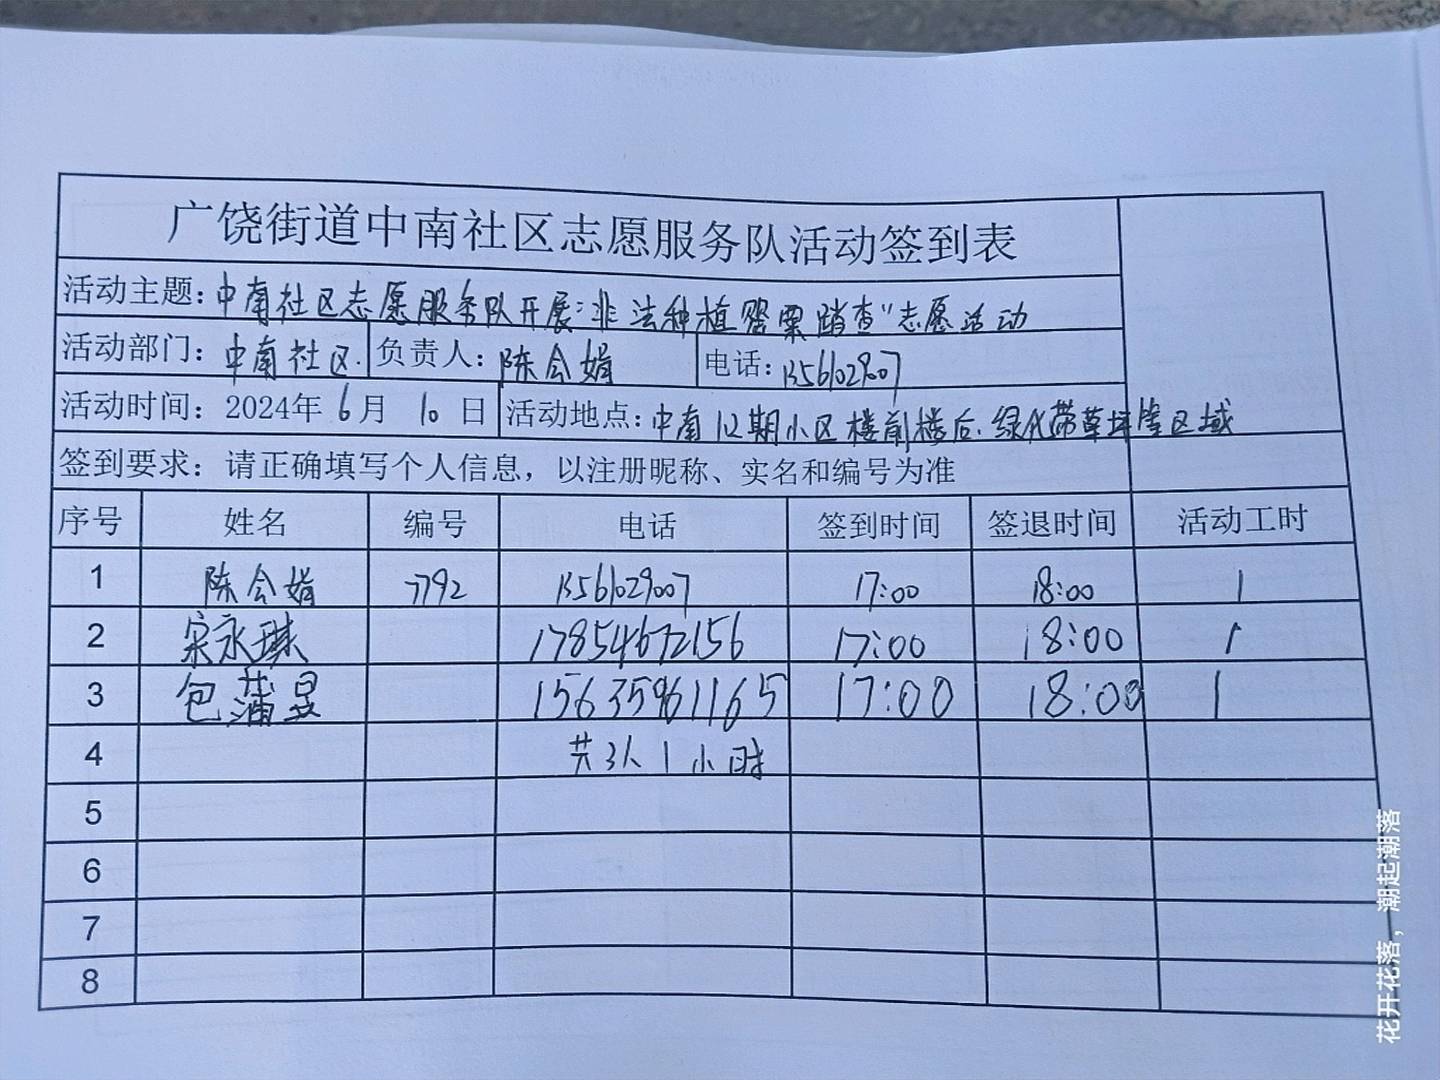 广饶街道中南社区志愿服务队活动签到表
活动主题：中南社区志愿服务队开展"非法种植罂粟踏查"志愿活动
活动部门：中南社区 负责人：陈会娟 电话：13561029007
活动时间：2024年 6月 10日 活动地点：中南12期小区楼前楼后、绿化带草坪等区域
签到要求：请正确填写个人信息，以注册昵称、实名和编号为准
序号 姓名 编号 电话 签到时间 签退时间 活动工时
1 陈会娟 7792 13561029007 17:00 18:00 1
2 宋永琪 17854672156 17:00 18:00 1
3 包蒲昱 15635961165 17:00 18:00 1
4 共3人1小时
5
6
7
8
花开花落，潮起潮落